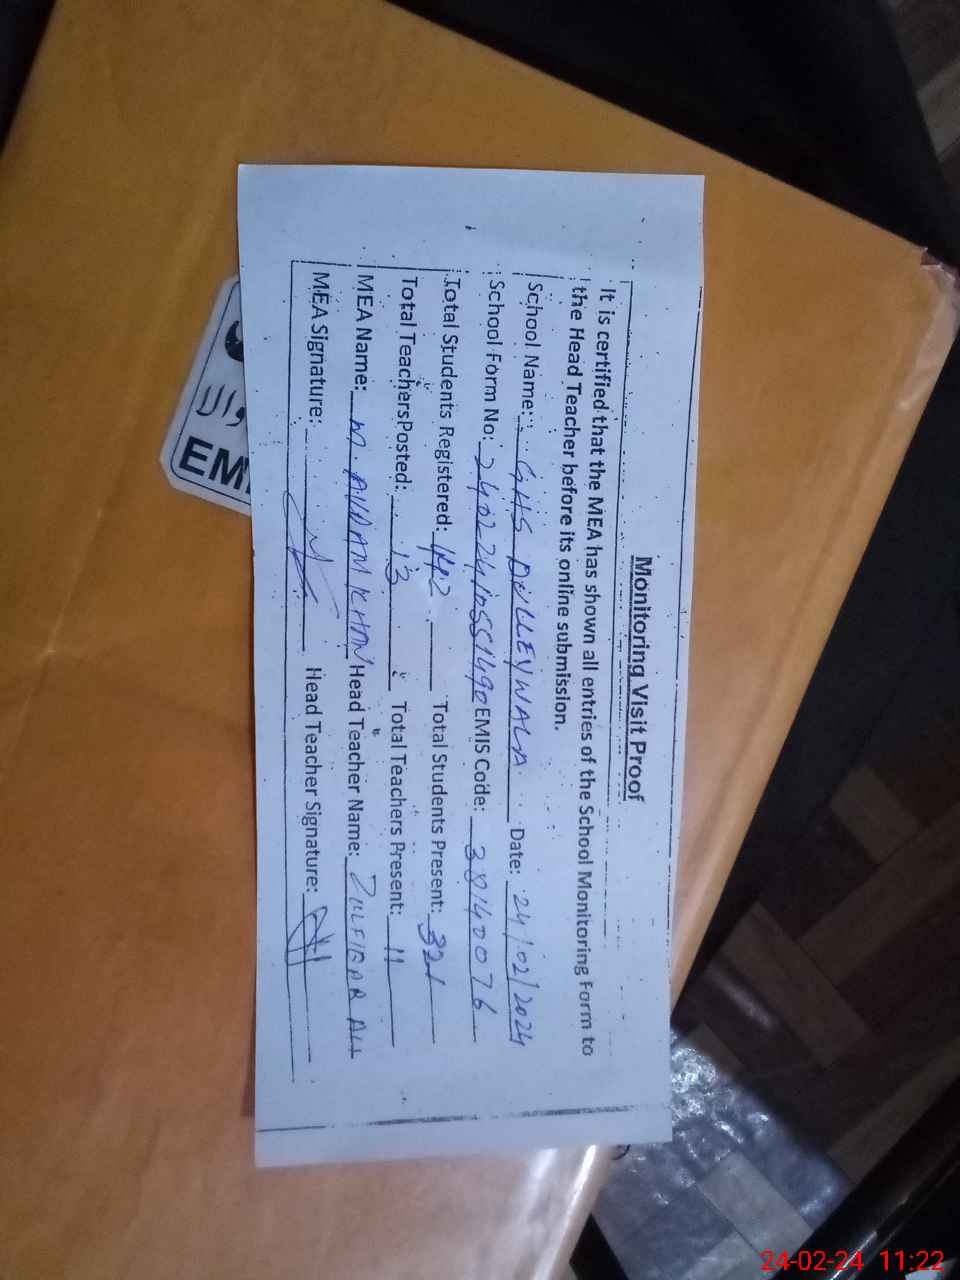 Monitoring Visit Proof
It is certified that the MEA has shown all entries of the School Monitoring Form to
the Head Teacher before its online submission.
School Name: GHS DULLEYWALA Date: 24/02/2024
School Form No: EMIS Code: 38140076
Total Students Registered: 442 Total Students Present: 321
Total Teachers Posted: 13 Total Teachers Present: 11
MEA Name: M. KHAN Head Teacher Name: ZULFIQAR ALI
MEA Signature: Head Teacher Signature:
24-02-24 11:22